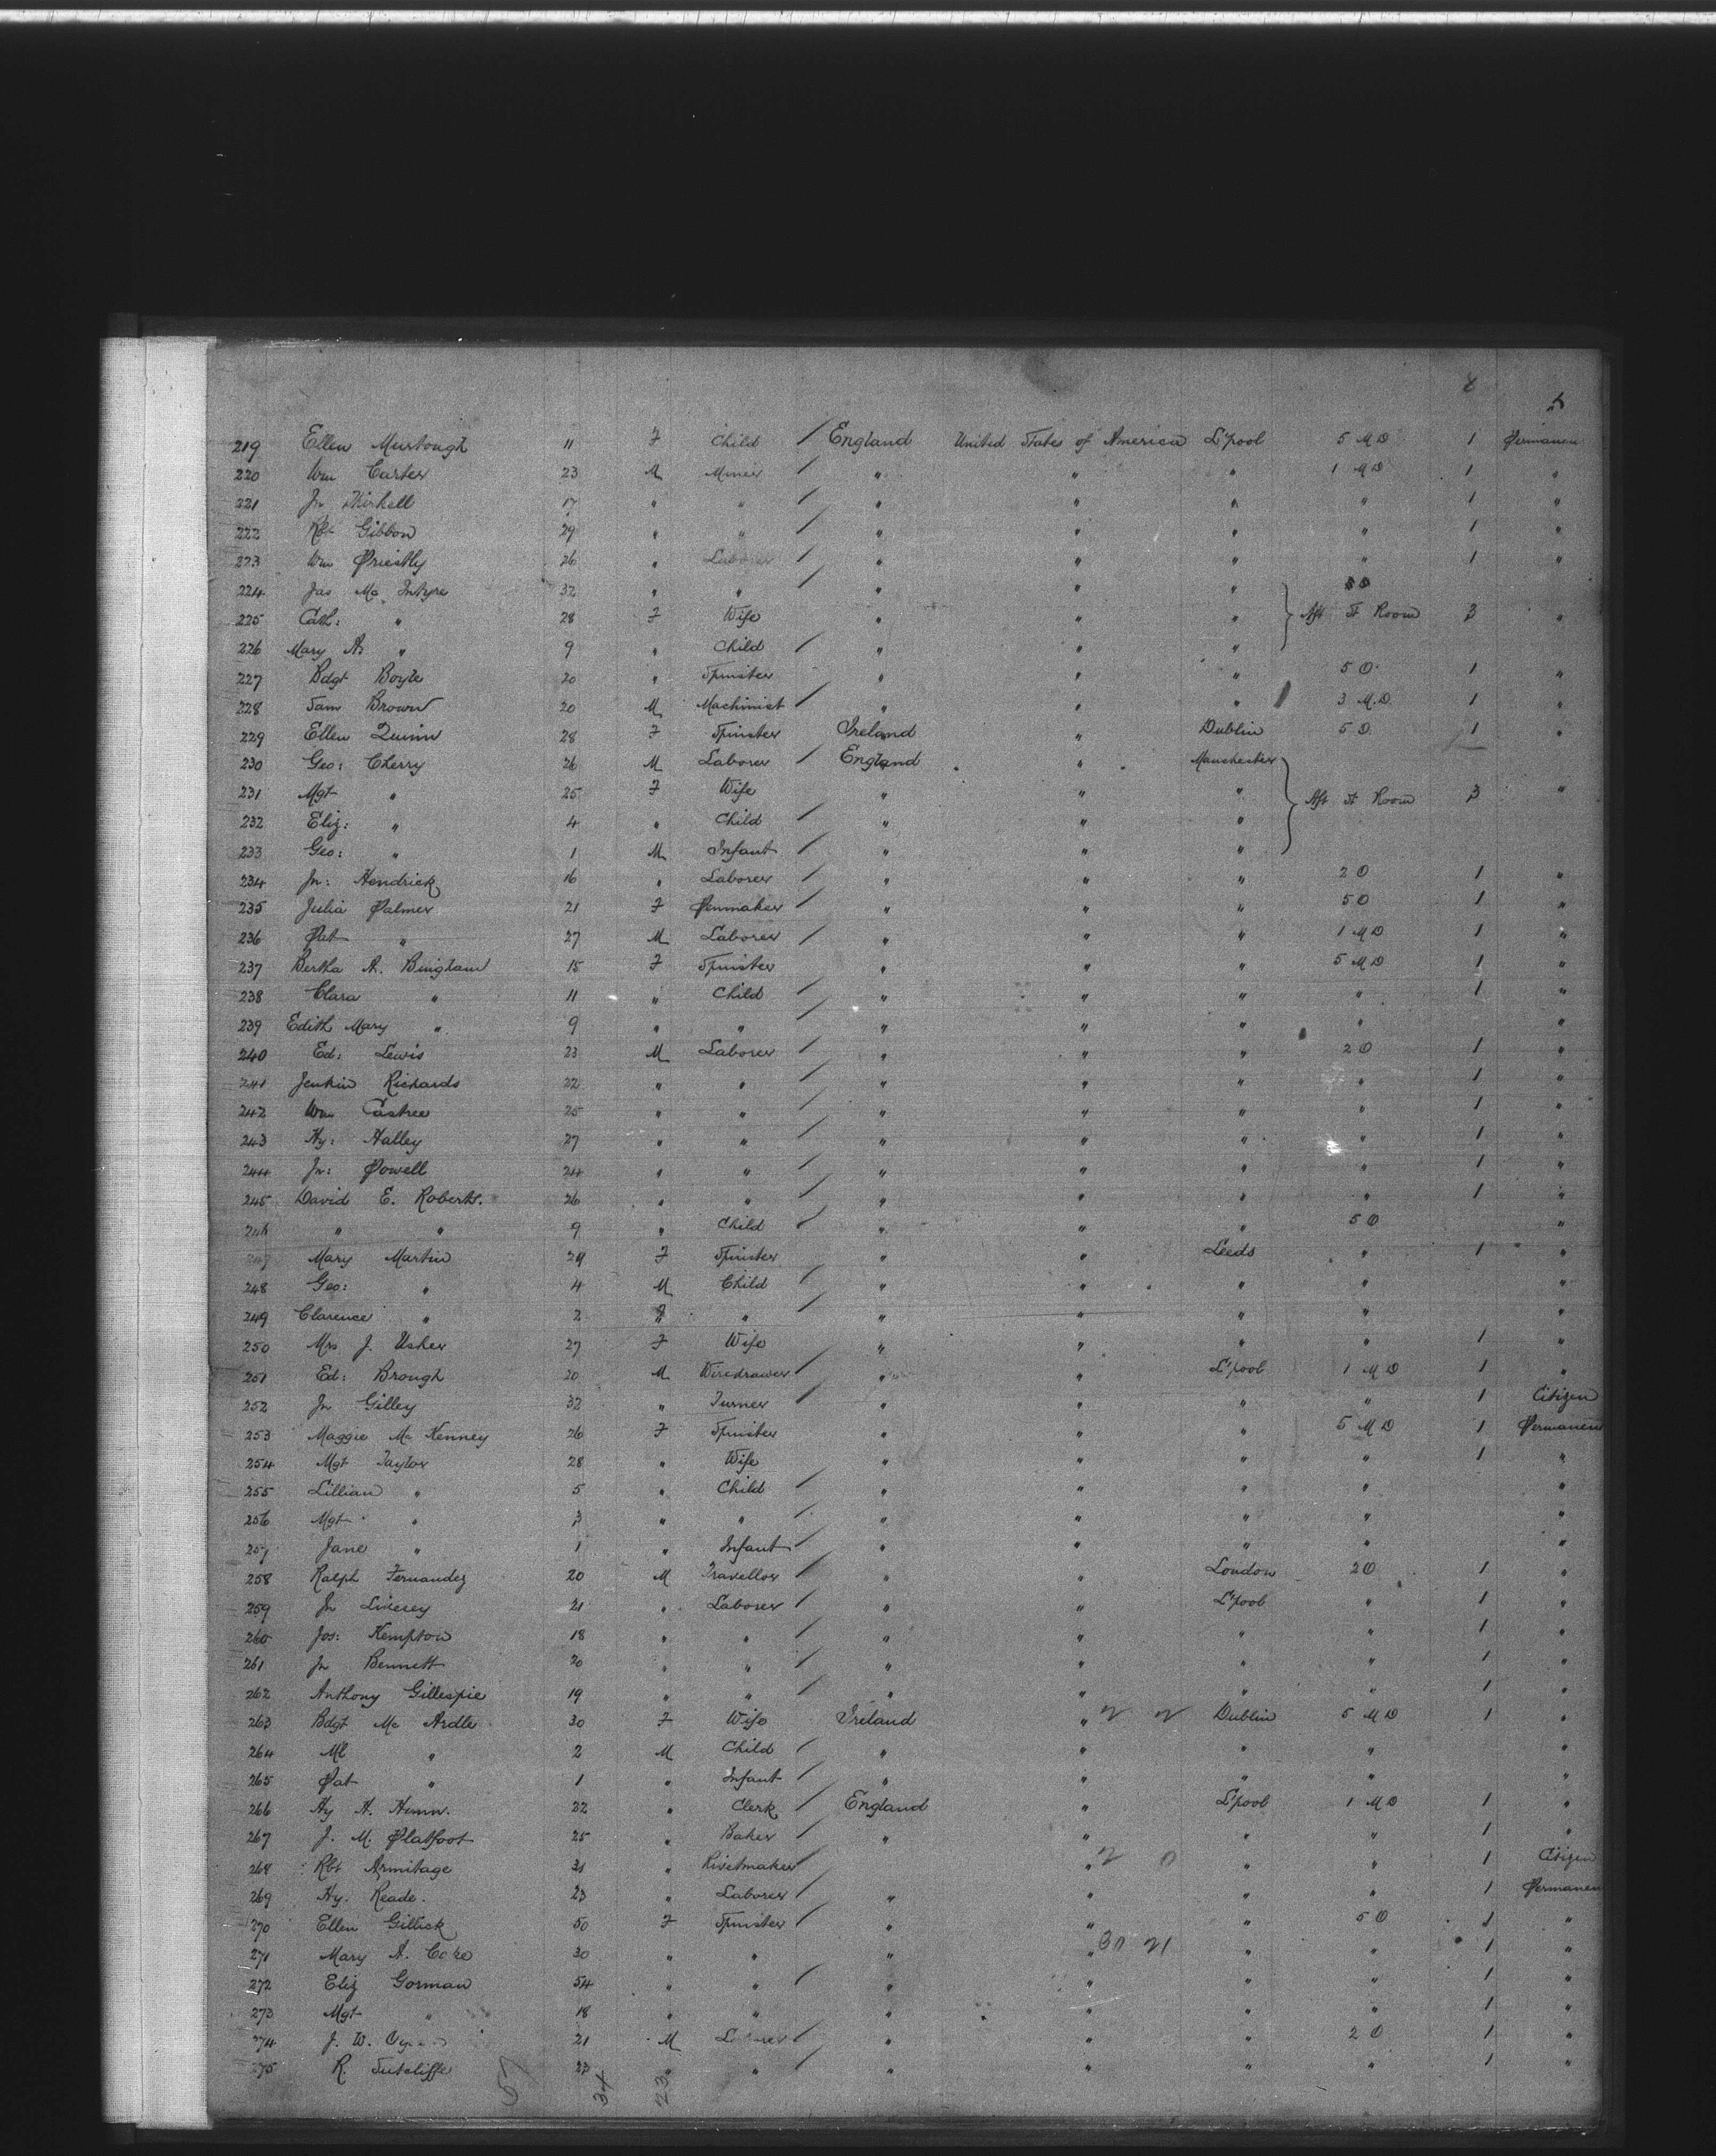 219 Ellen Murtough 11 F Child / England United States of America L'pool 5 M D 1 Permanen
220 Wm Carter 23 M Miner / " " " 1 M D 1 "
221 Jn 17 " " / " " " " 1 "
222 Rbt Gibbon 29 " " / " " " " 1 "
223 Wm Priestly 26 " Laborer / " " " " 1 "
224 Jas Mc Intyre 32 " " / " " "
225 Cath: " 28 F Wife " " " Aft St Room 3 "
226 Mary A. " 9 " Child / " " "
227 Bdgt Boyle 20 " Spinster " " " 5 O 1 "
228 Sam Brown 20 M Machinist / " " " 3 M.D. 1 "
229 Ellen Quinn 28 F Spinster Ireland " Dublin 5 O 1 "
230 Geo: Cherry 26 M Laborer / England " Manchester
231 Mgt " 25 F Wife " " " Aft St Room 3 "
232 Eliz: " 4 " Child / " " "
233 Geo: " 1 M Infant / " " "
234 Jn: Hendrick 16 " Laborer / " " " 2 O 1 "
235 Julia Palmer 21 F Penmaker / " " " 5 O 1 "
236 Pat " 27 M Laborer / " " " 1 M D 1 "
237 Bertha A. Bingham 15 F Spinster " " " 5 M D 1 "
238 Clara " 11 " Child / " " " " 1 "
239 Edith Mary " 9 " " / " " " " "
240 Ed: Lewis 23 M Laborer / " " " 2 O 1 "
241 Jenkin Richards 22 " " / " " " " 1 "
242 Wm Castree 25 " " / " " " " 1 "
243 Hy: Halley 27 " " / " " " " 1 "
244 Jn: Powell 24 " " / " " " " 1 "
245 David E. Roberts. 26 " " / " " " " 1 "
246 " " 9 " Child / " " " 5 O "
247 Mary Martin 29 F Spinster " " Leeds " 1 "
248 Geo: " 4 M Child / " " " " "
249 Clarence " 2 " " / " " " " "
250 Mrs J. Usher 27 F Wife " " " " 1 "
251 Ed: Brough 20 M Wiredrawer / " " L'pool 1 M D 1 "
252 Jn Gilley 32 " Turner / " " " " 1 Citizen
253 Maggie Mc Kenney 26 F Spinster " " " 5 M D 1 Permanen
254 Mgt Taylor 28 " Wife " " " " 1 "
255 Lillian " 5 " Child / " " " " "
256 Mgt " 3 " " / " " " " "
257 Jane " 1 " Infant / " " " " "
258 Ralph Fernandez 20 M Travellor / " " London 2 O 1 "
259 Jn Livesey 21 " Laborer / " " L'pool " 1 "
260 Jos: Kempton 18 " " / " " " " 1 "
261 Jn Bennett 20 " " / " " " " 1 "
262 Anthony Gillespie 19 " " / " " " " 1 "
263 Bdgt Mc Ardle 30 F Wife Ireland " Dublin 5 M D 1 "
264 Ml " 2 M Child / " " " " "
265 Pat " 1 " Infant / " " " " "
266 Hy H. Hunn. 22 " Clerk / England " L'pool 1 M D 1 "
267 J. M. Platfoot 25 " Baker / " " " " 1 "
268 Rbt Armitage 31 " Rivetmaker / " " " 1 Citizen
269 Hy. Reade. 23 " Laborer / " " " " 1 Permanen
270 Ellen Gillick 50 F Spinster / " " " 5 O 1 "
271 Mary A. 30 " " " " 30 21 " " 1 "
272 Eliz Gorman 54 " " / " " " " 1 "
273 Mgt " 18 " " " " " " 1 "
274 J. W. 21 M Laborer / " " " 2 O 1 "
275 R. Sutcliffe 23 " " / " " " " 1 "
57 34 23